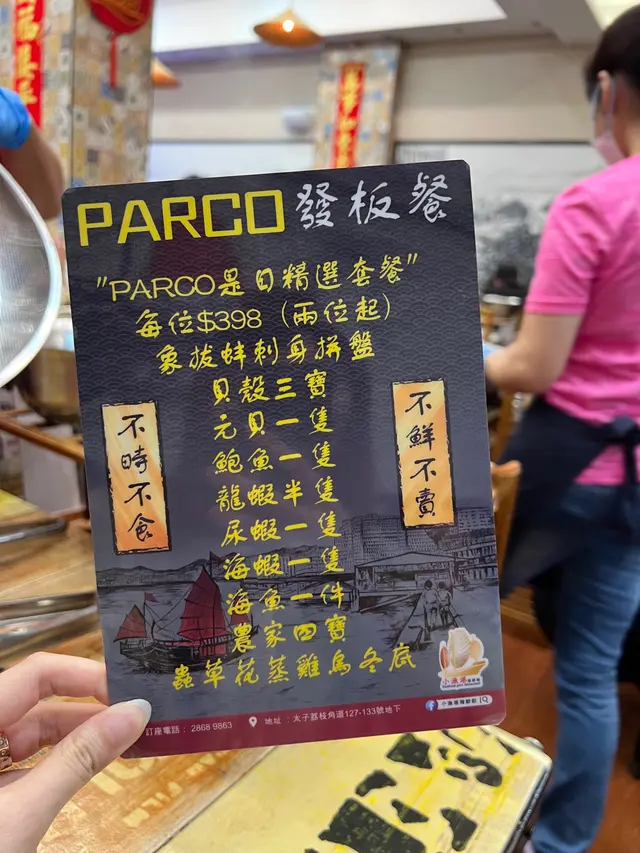 PARCO 發板餐
"PARCO是日精選套餐"
每位$398（兩位起）
象拔蚌刺身拼盤
貝殼三寶
元貝一隻
鮑魚一隻
龍蝦半隻
尿蝦一隻
海蝦一隻
海魚一件
農家四寶
蟲草花蒸雞烏冬底
不時不食
不鮮不賣
訂座電話： 2868 9863
地址：太子荔枝角道127-133號地下